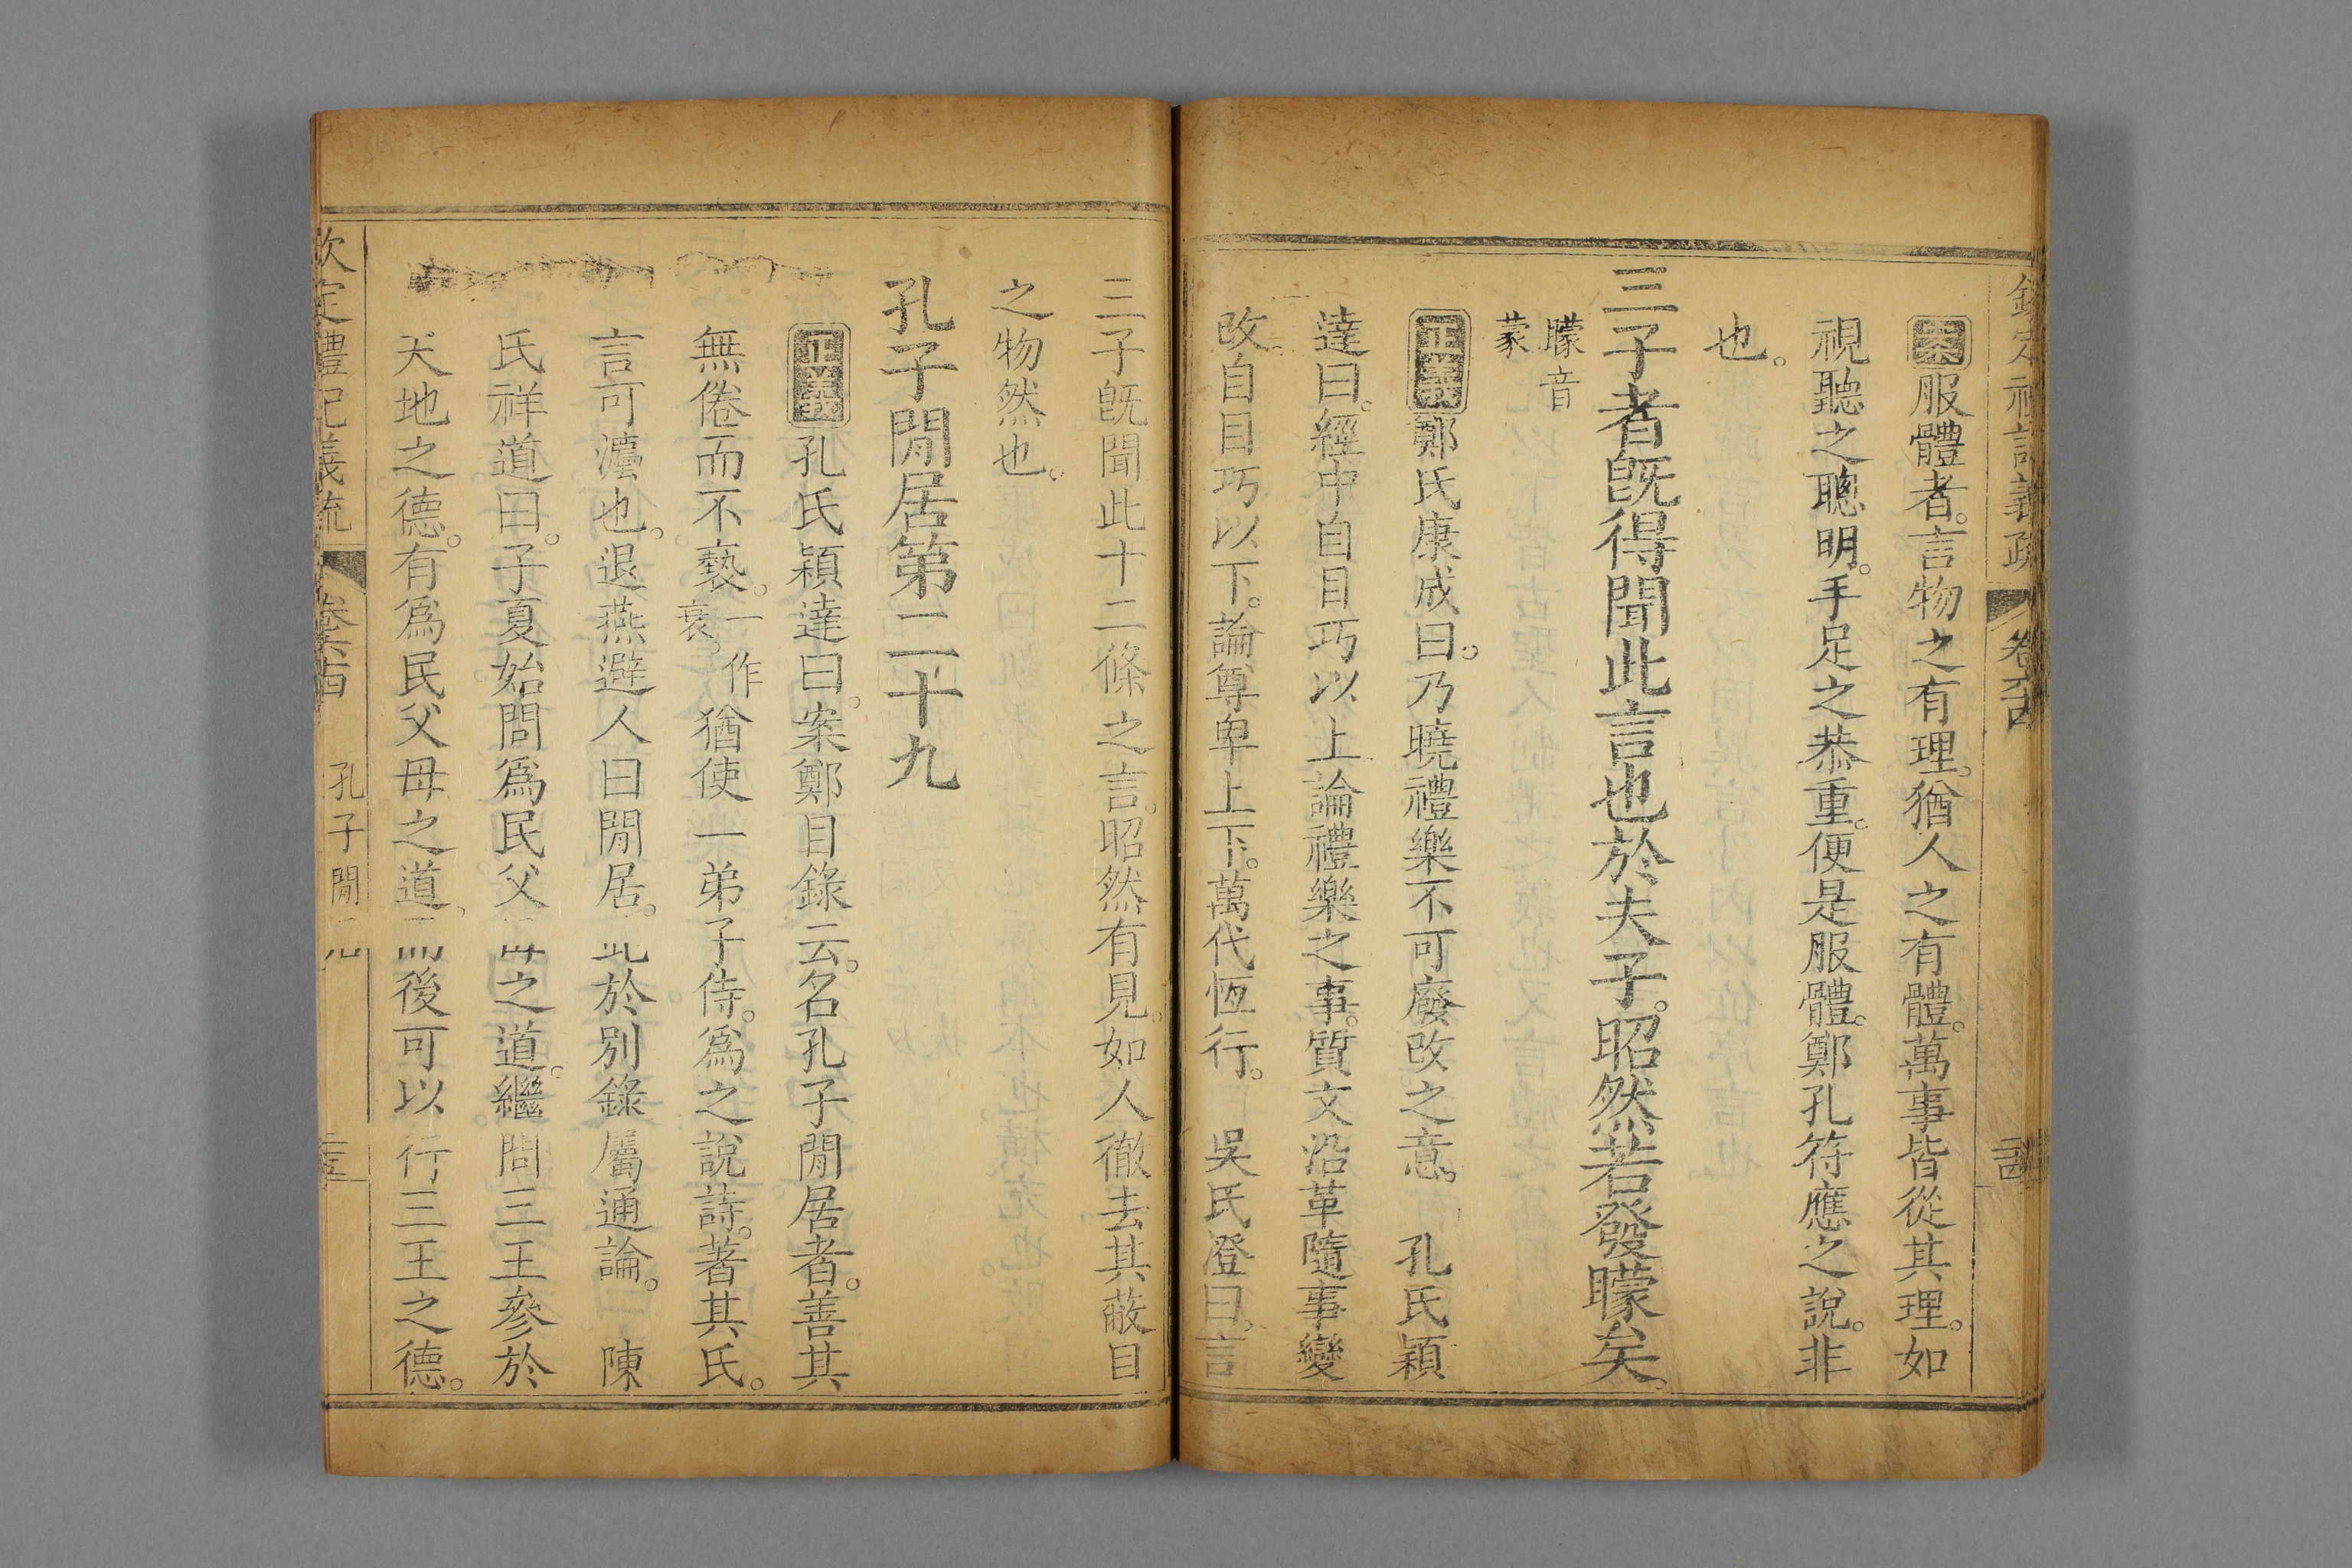 欽定禮記義疏
案服體者。言物之有理。猶人之有體。萬事皆從其理。如
視聽之聰明。手足之恭重。便是服體。鄭孔符應之說。非
也。
三子者旣得聞此言也於夫子。昭然若發矇矣。
矇音
蒙
正義鄭氏康成曰。乃曉禮樂不可廢改之意。　孔氏穎
達曰。經中自目巧以上論禮樂之事。質文沿革隨事變
改。自目巧以下。論尊卑上下。萬代恆行。　吳氏澄曰。言
三子旣聞此十二條之言。昭然有見。如人徹去其蔽目
之物然也。
孔子閒居第二十九
正義孔氏穎達曰。案鄭目錄云。名孔子閒居者。善其
無倦而不褻。一作
衰。猶使一弟子侍。爲之說詩。著其氏。
言可灋也。退燕避人曰閒居。此於別錄屬通論。　陳
氏祥道曰。子夏始問爲民父母之道。繼問三王參於
天地之德。有爲民父母之道。而後可以行三王之德。
欽定禮記義疏　孔子閒居